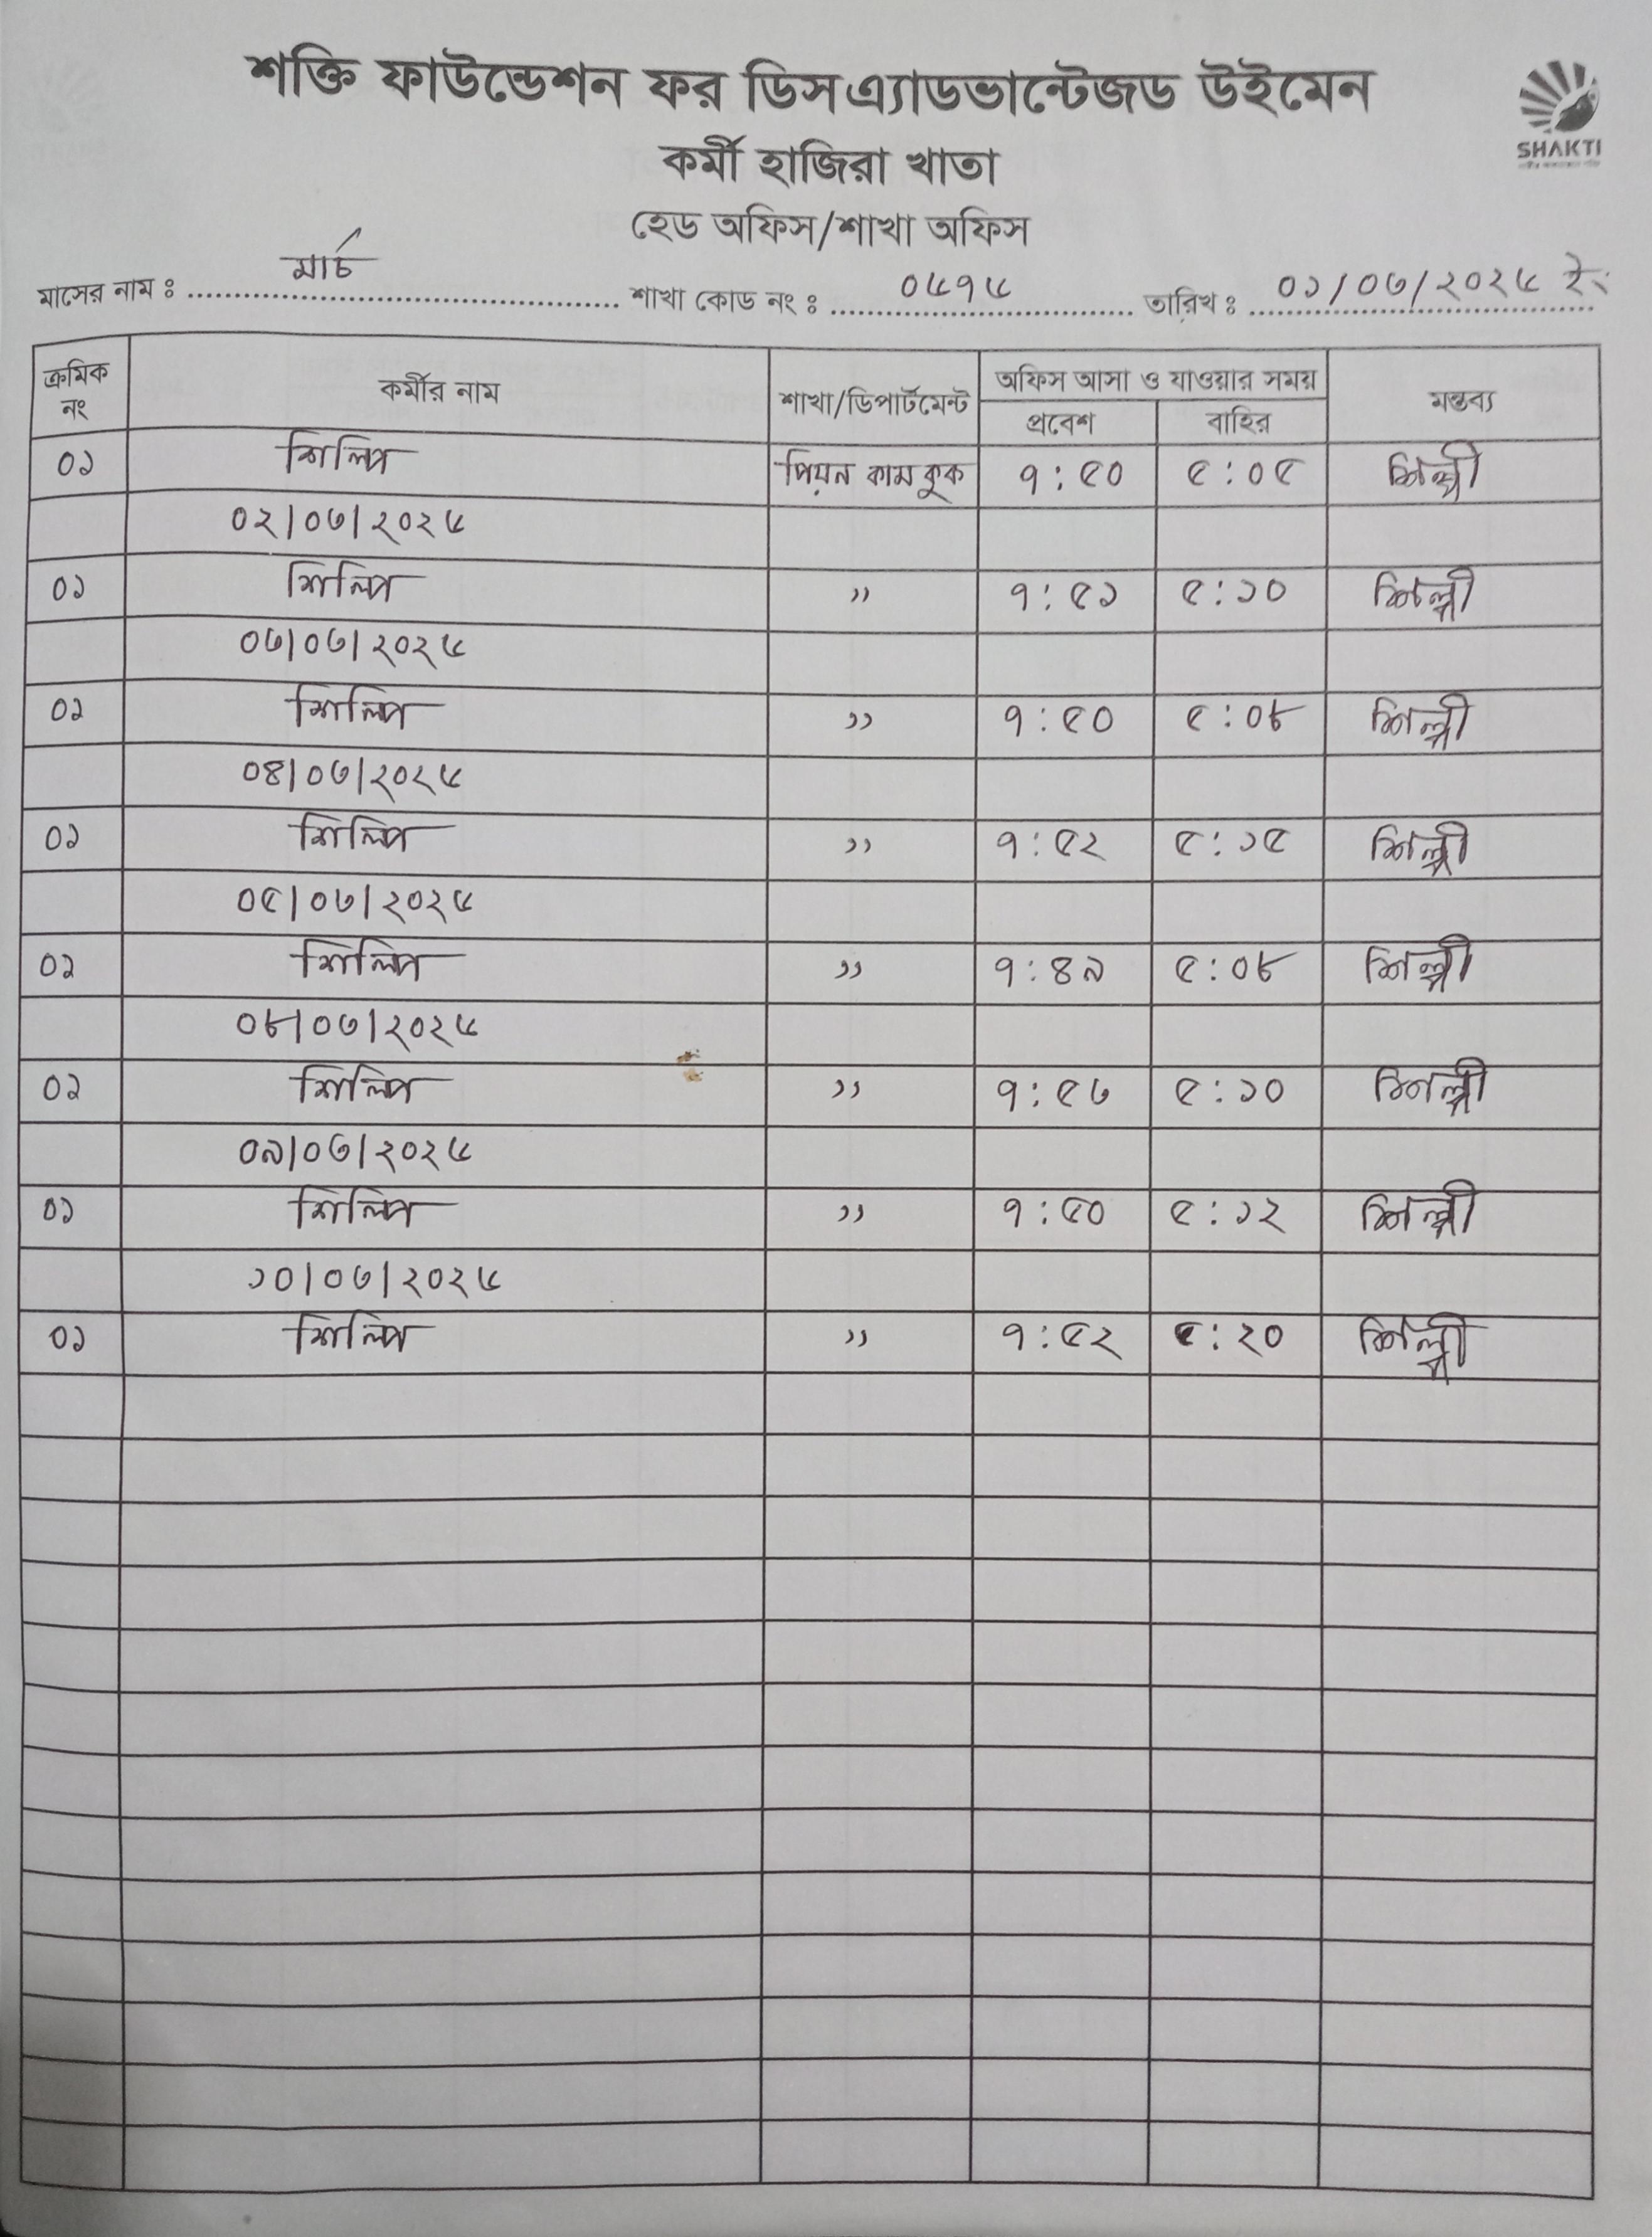 শক্তি ফাউন্ডেশন ফর ডিসএ্যাডভান্টেজড উইমেন
SHAKTI
কর্মী হাজিরা খাতা
হেড অফিস/শাখা অফিস
মাসের নাম ঃ মার্চ শাখা কোড নং ঃ ০৬৭৬ তারিখ ঃ ০১/০৩/২০২৬ ইং
ক্রমিক নং কর্মীর নাম শাখা/ডিপার্টমেন্ট অফিস আসা ও যাওয়ার সময় মন্তব্য
প্রবেশ বাহির
০১ শিল্পি পিয়ন কাম কুক ৭:৫০ ৫:০৫ শিল্পী
০২/০৩/২০২৬
০১ শিল্পি " ৭:৫১ ৫:১০ শিল্পী
০৩/০৩/২০২৬
০১ শিল্পি " ৭:৫০ ৫:০৮ শিল্পী
০৪/০৩/২০২৬
০১ শিল্পি " ৭:৫২ ৫:১৫ শিল্পী
০৫/০৩/২০২৬
০১ শিল্পি " ৭:৪৯ ৫:০৮ শিল্পী
০৮/০৩/২০২৬
০১ শিল্পি " ৭:৫৩ ৫:১০ শিল্পী
০৯/০৩/২০২৬
০১ শিল্পি " ৭:৫০ ৫:১২ শিল্পী
১০/০৩/২০২৬
০১ শিল্পি " ৭:৫২ ৫:২০ শিল্পী